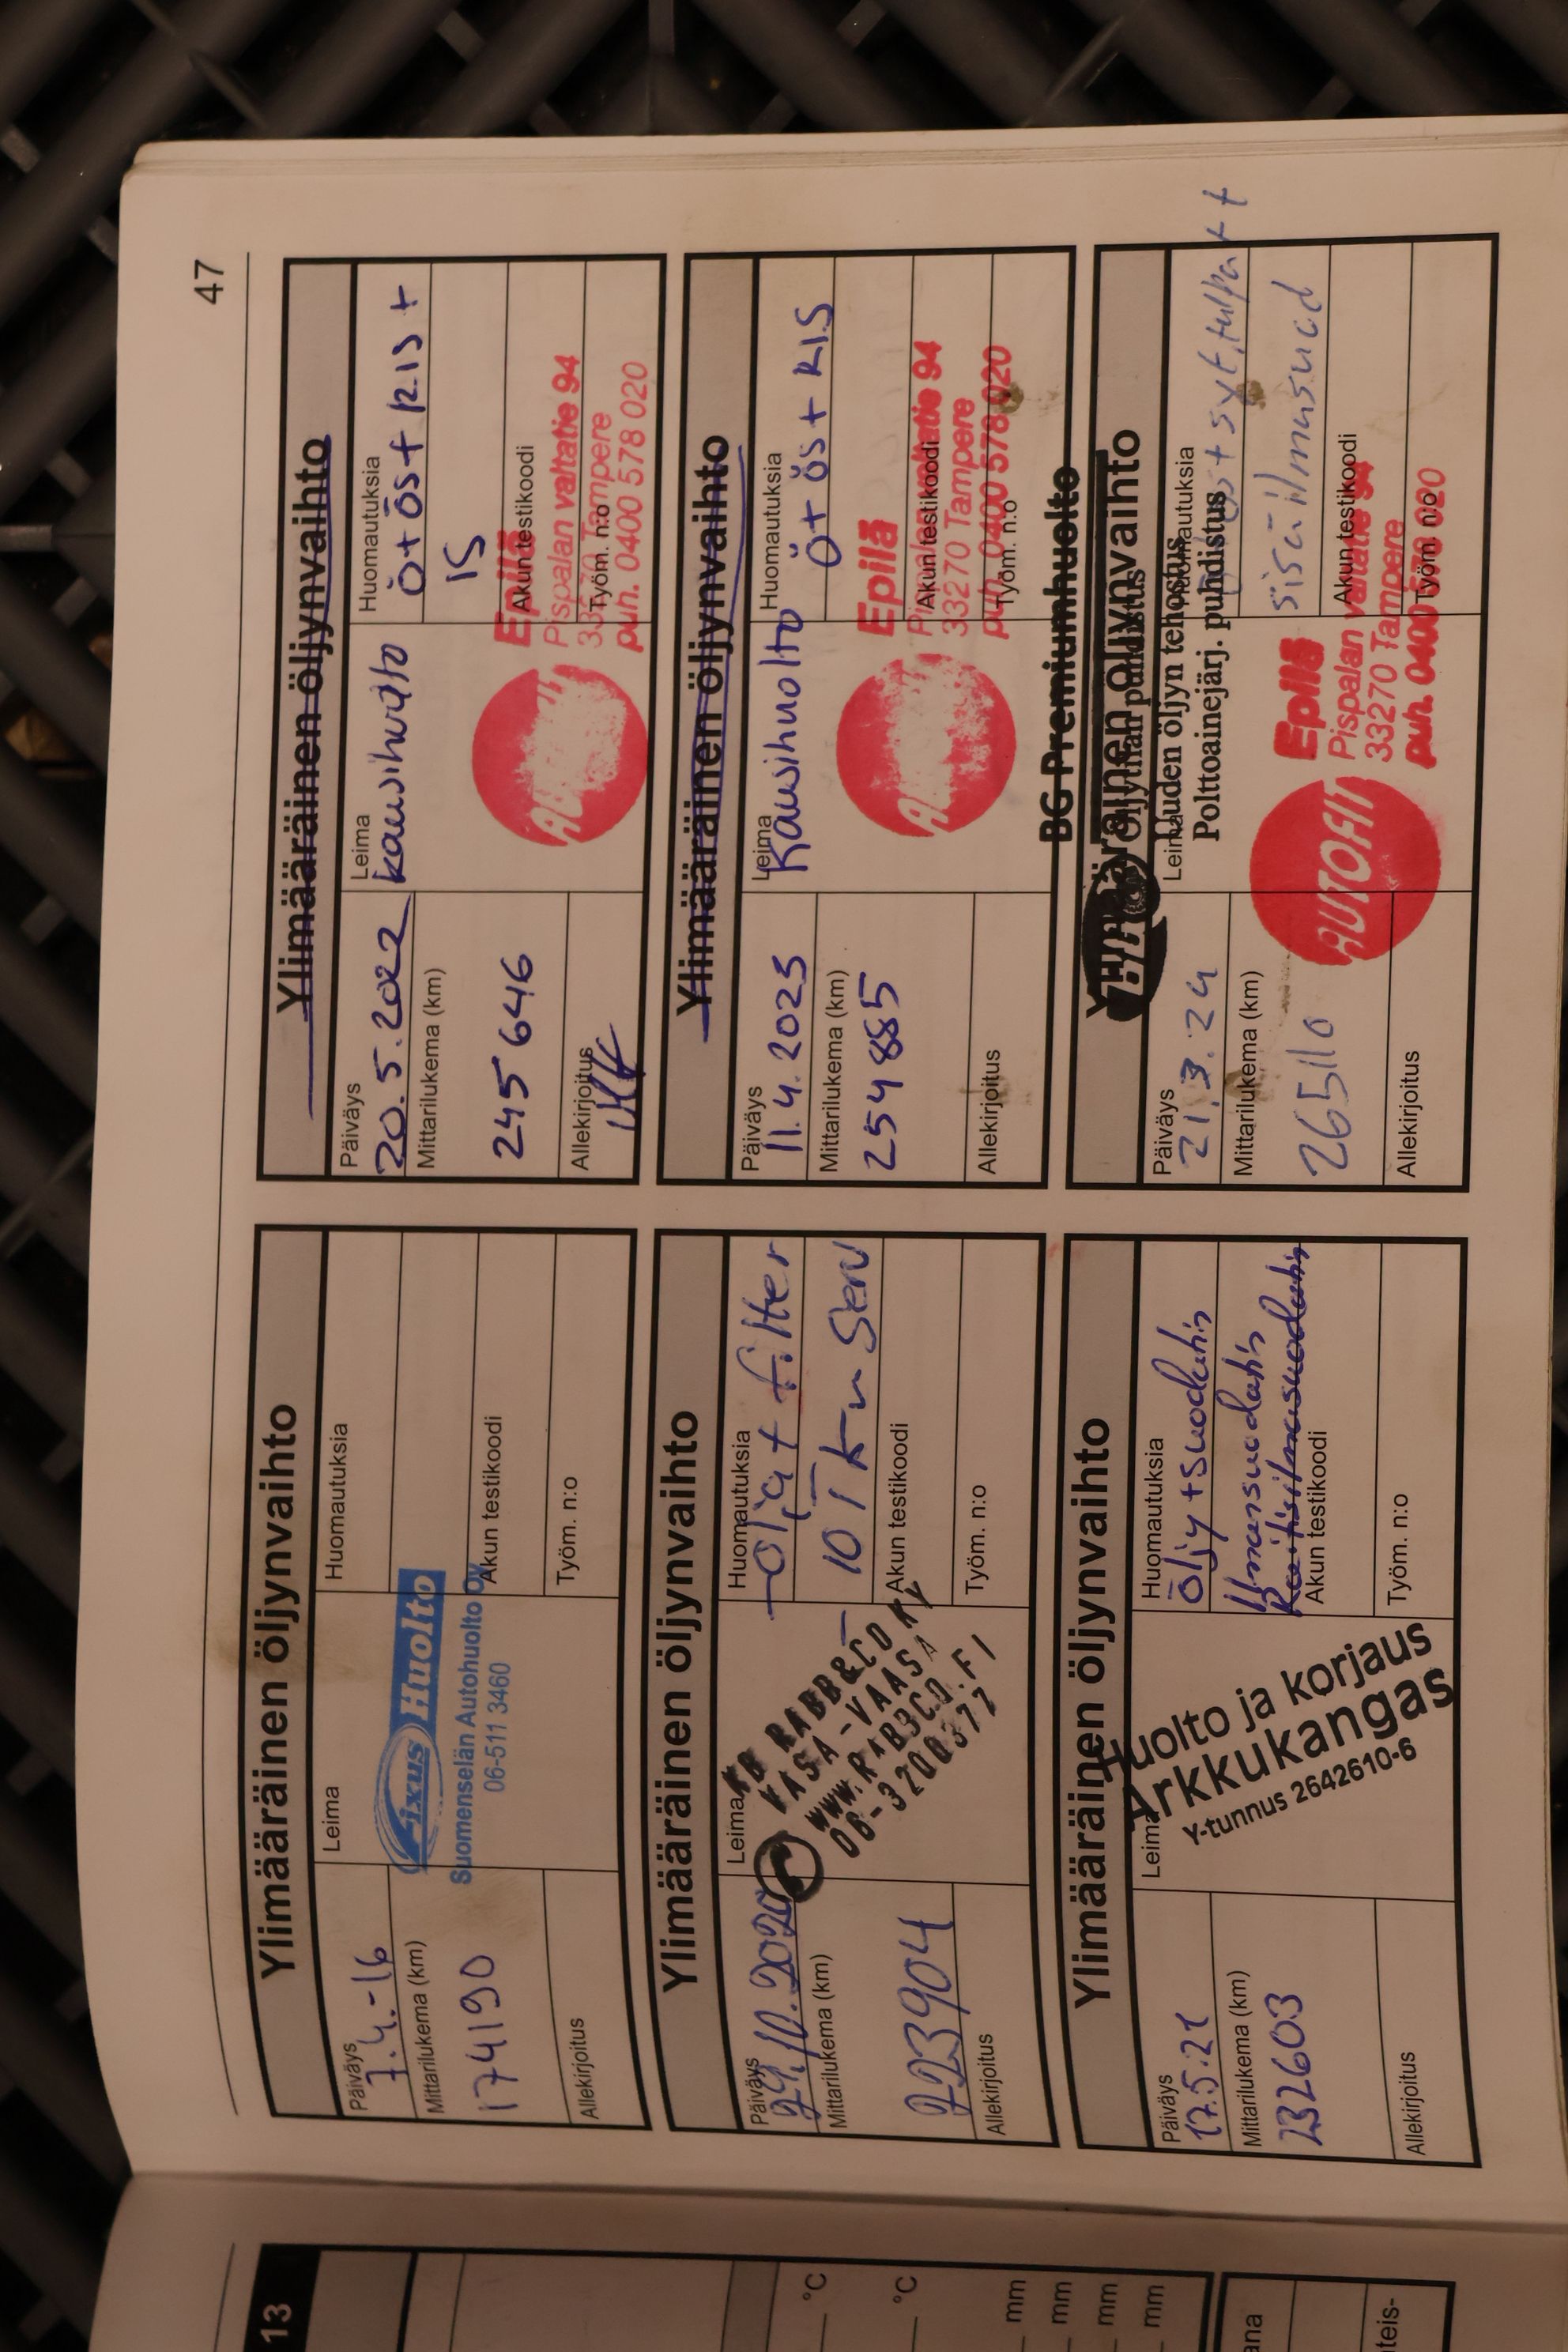 47
Ylimääräinen öljynvaihto
Päiväys
7.4.-16
Mittarilukema (km)
174190
Allekirjoitus
Leima
Fixus Huolto
Suomenselän Autohuolto Oy
06-511 3460
Huomautuksia
Akun testikoodi
Työm. n:o
Ylimääräinen öljynvaihto
Päiväys
29.10.2020
Mittarilukema (km)
223904
Allekirjoitus
Leima
KB RABB&CO KY
VASA-VAASA
WWW.RABBCO.FI
06-3200377
Huomautuksia
olja + filter
10 Tkm Serv
Akun testikoodi
Työm. n:o
Ylimääräinen öljynvaihto
Päiväys
17.5.21
Mittarilukema (km)
232603
Allekirjoitus
Leima
Huolto ja korjaus
Arkkukangas
Y-tunnus 2642610-6
Huomautuksia
Öljy + suodatin
Ilmansuodatin
Raitisilmasuodatin
Akun testikoodi
Työm. n:o
Ylimääräinen öljynvaihto
Päiväys
20.5.2022
Mittarilukema (km)
245 646
Allekirjoitus
Leima
kausihuolto
Huomautuksia
Ö+ ÖS+ RIS +
IS
Epilä
Pispalan valtatie 94
33270 Tampere
puh. 0400 578 020
Akun testikoodi
Työm. n:o
Ylimääräinen öljynvaihto
Päiväys
11.4.2023
Mittarilukema (km)
254 885
Allekirjoitus
Leima
Kausihuolto
Huomautuksia
Ö+ ÖS+ RIS
Epilä
Pispalan valtatie 94
33270 Tampere
puh. 0400 578 020
Akun testikoodi
Työm. n:o
BG Premiumhuolto
Ylimääräinen öljynvaihto
Öljytilan puhdistus
Uuden öljyn tehostus
Polttoainejärj. puhdistus
Päiväys
21.3.24
Mittarilukema (km)
265110
Allekirjoitus
Leima
AUTOFIT
Epilä
Pispalan valtatie 94
33270 Tampere
puh. 0400 578 020
Huomautuksia
ös + syt.tulpat +
sisäilmasuod
Akun testikoodi
Työm. n:o
13
°C
°C
mm
mm
mm
mm
ana
teis-